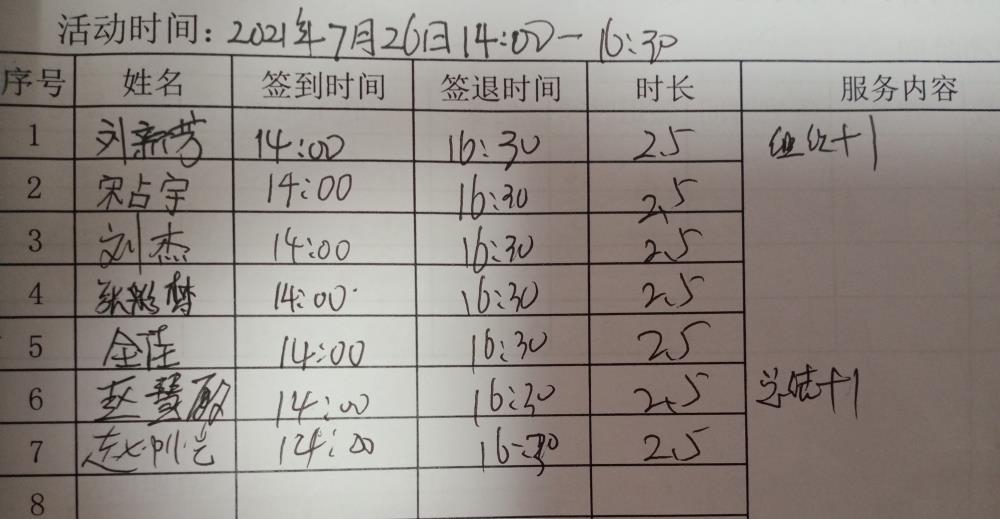 活动时间：2021年7月26日14:00—16:30
序号 姓名 签到时间 签退时间 时长 服务内容
1 刘新芳 14:00 16:30 2.5 组织+1
2 宋占宇 14:00 16:30 2.5
3 刘杰 14:00 16:30 2.5
4 张彩梦 14:00 16:30 2.5
5 金莲 14:00 16:30 2.5
6 赵慧 14:00 16:30 2.5 总结+1
7 14:00 16:30 2.5
8